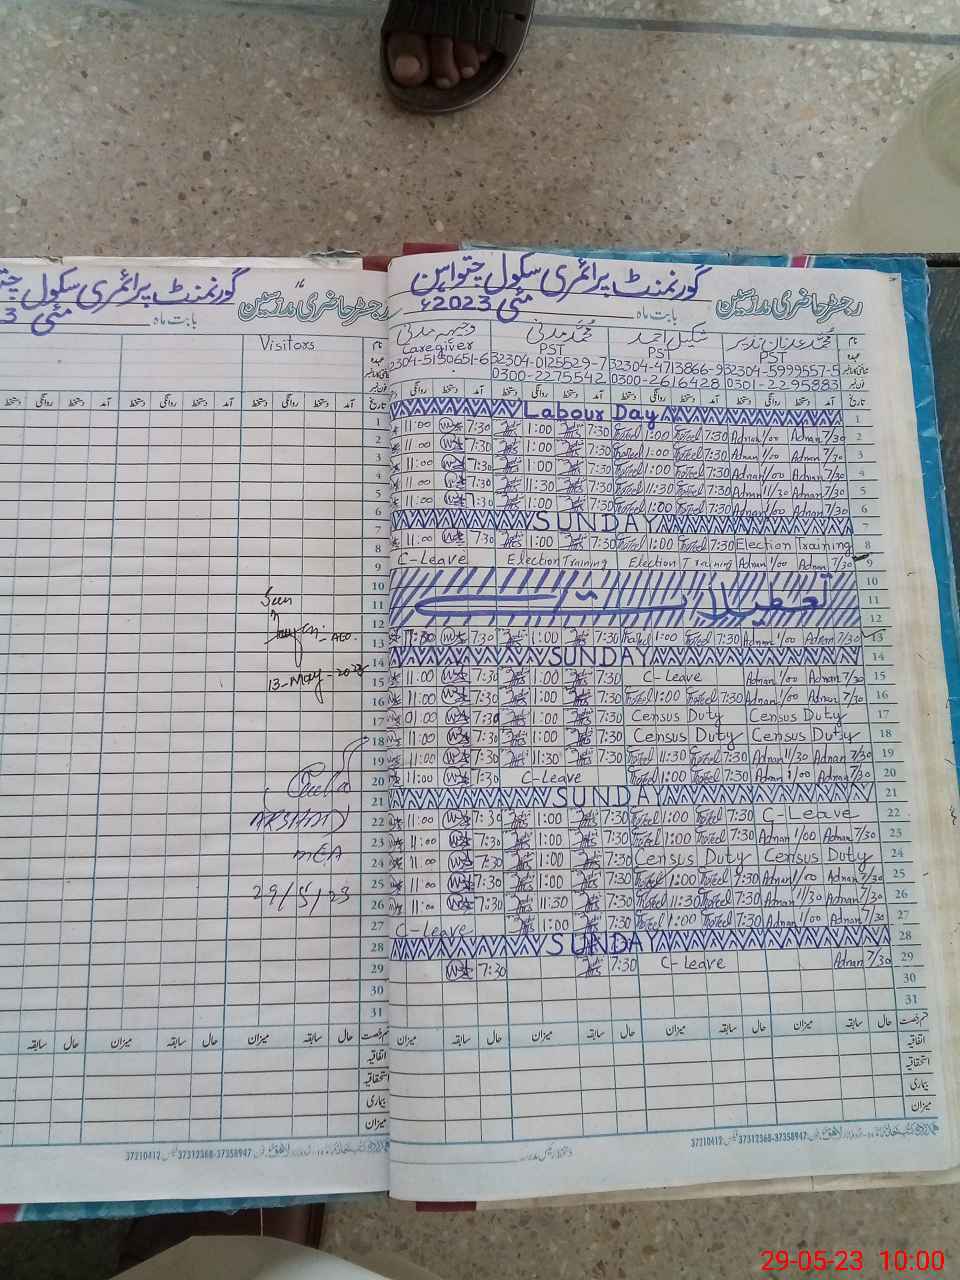 گورنمنٹ پرائمری سکول چتواہن
رجسٹر حاضری مدرسین
بابت ماہ مئی 2023ء
Visitors
نام
محمد عدنان نذیر
شکیل احمد
محمد مدنی
وجیہہ مدنی
PST
PST
PST
Caregiver
32304-5999557-5
32304-4713866-9
32304-0125529-7
2304-5150651-6
0301-2295883
0300-2616428
0300-2275542
تاریخ آمد دستخط روانگی دستخط آمد دستخط روانگی دستخط آمد دستخط روانگی دستخط
1 Labour Day
2 11:00 7:30 1:00 7:30 1:00 7:30 Adnan 1/00 Adnan 7/30
3 11:00 7:30 1:00 7:30 1:00 7:30 Adnan 1/00 Adnan 7/30
4 11:00 7:30 1:00 7:30 1:00 7:30 Adnan 1/00 Adnan 7/30
5 11:00 7:30 11:30 7:30 11:30 7:30 Adnan 11/30 Adnan 7/30
6 11:00 7:30 1:00 7:30 1:00 7:30 Adnan 1/00 Adnan 7/30
7 SUNDAY
8 11:00 7:30 1:00 7:30 1:00 7:30 Election Training
9 C-Leave Election Training Election Training Adnan 1/00 Adnan 7/30
10
11 تعطیلات
12
13 7:30 1:00 7:30 1:00 7:30 Adnan 1/00 Adnan 7/30
14 SUNDAY
15 11:00 7:30 1:00 7:30 C-Leave Adnan 1/00 Adnan 7/30
16 11:00 7:30 1:00 7:30 1:00 7:30 Adnan 1/00 Adnan 7/30
17 7:30 1:00 7:30 Census Duty Census Duty
18 11:00 7:30 1:00 7:30 Census Duty Census Duty
19 11:00 7:30 11:30 7:30 11:30 7:30 Adnan 11/30 Adnan 7/30
20 11:00 7:30 C-Leave 1:00 7:30 Adnan 1/00 Adnan 7/30
21 SUNDAY
22 11:00 7:30 1:00 7:30 1:00 7:30 C-Leave
23 11:00 7:30 1:00 7:30 1:00 7:30 Adnan 1/00 Adnan 7/30
24 11:00 7:30 1:00 7:30 Census Duty Census Duty
25 11:00 7:30 1:00 7:30 1:00 7:30 Adnan 1/00 Adnan 7/30
26 11:00 7:30 11:30 7:30 11:30 7:30 Adnan 11/30 Adnan 7/30
27 C-Leave 1:00 7:30 1:00 7:30 Adnan 1/00 Adnan 7/30
28 SUNDAY
29 7:30 7:30 C-Leave Adnan 7/30
30
31
قسم رخصت حال سابقہ میزان حال سابقہ میزان حال سابقہ میزان
اتفاقیہ
استحقاقیہ
بیماری
میزان
37210412 فیکس 37312368-37358947
دستخط رئیس مدرسہ
گورنمنٹ پرائمری سکول
رجسٹر حاضری مدرسین
بابت ماہ مئی
Seen
13-May-2023
ARSHAD
MEA
29/5/23
37210412 فیکس 37312368-37358947
29-05-23 10:00